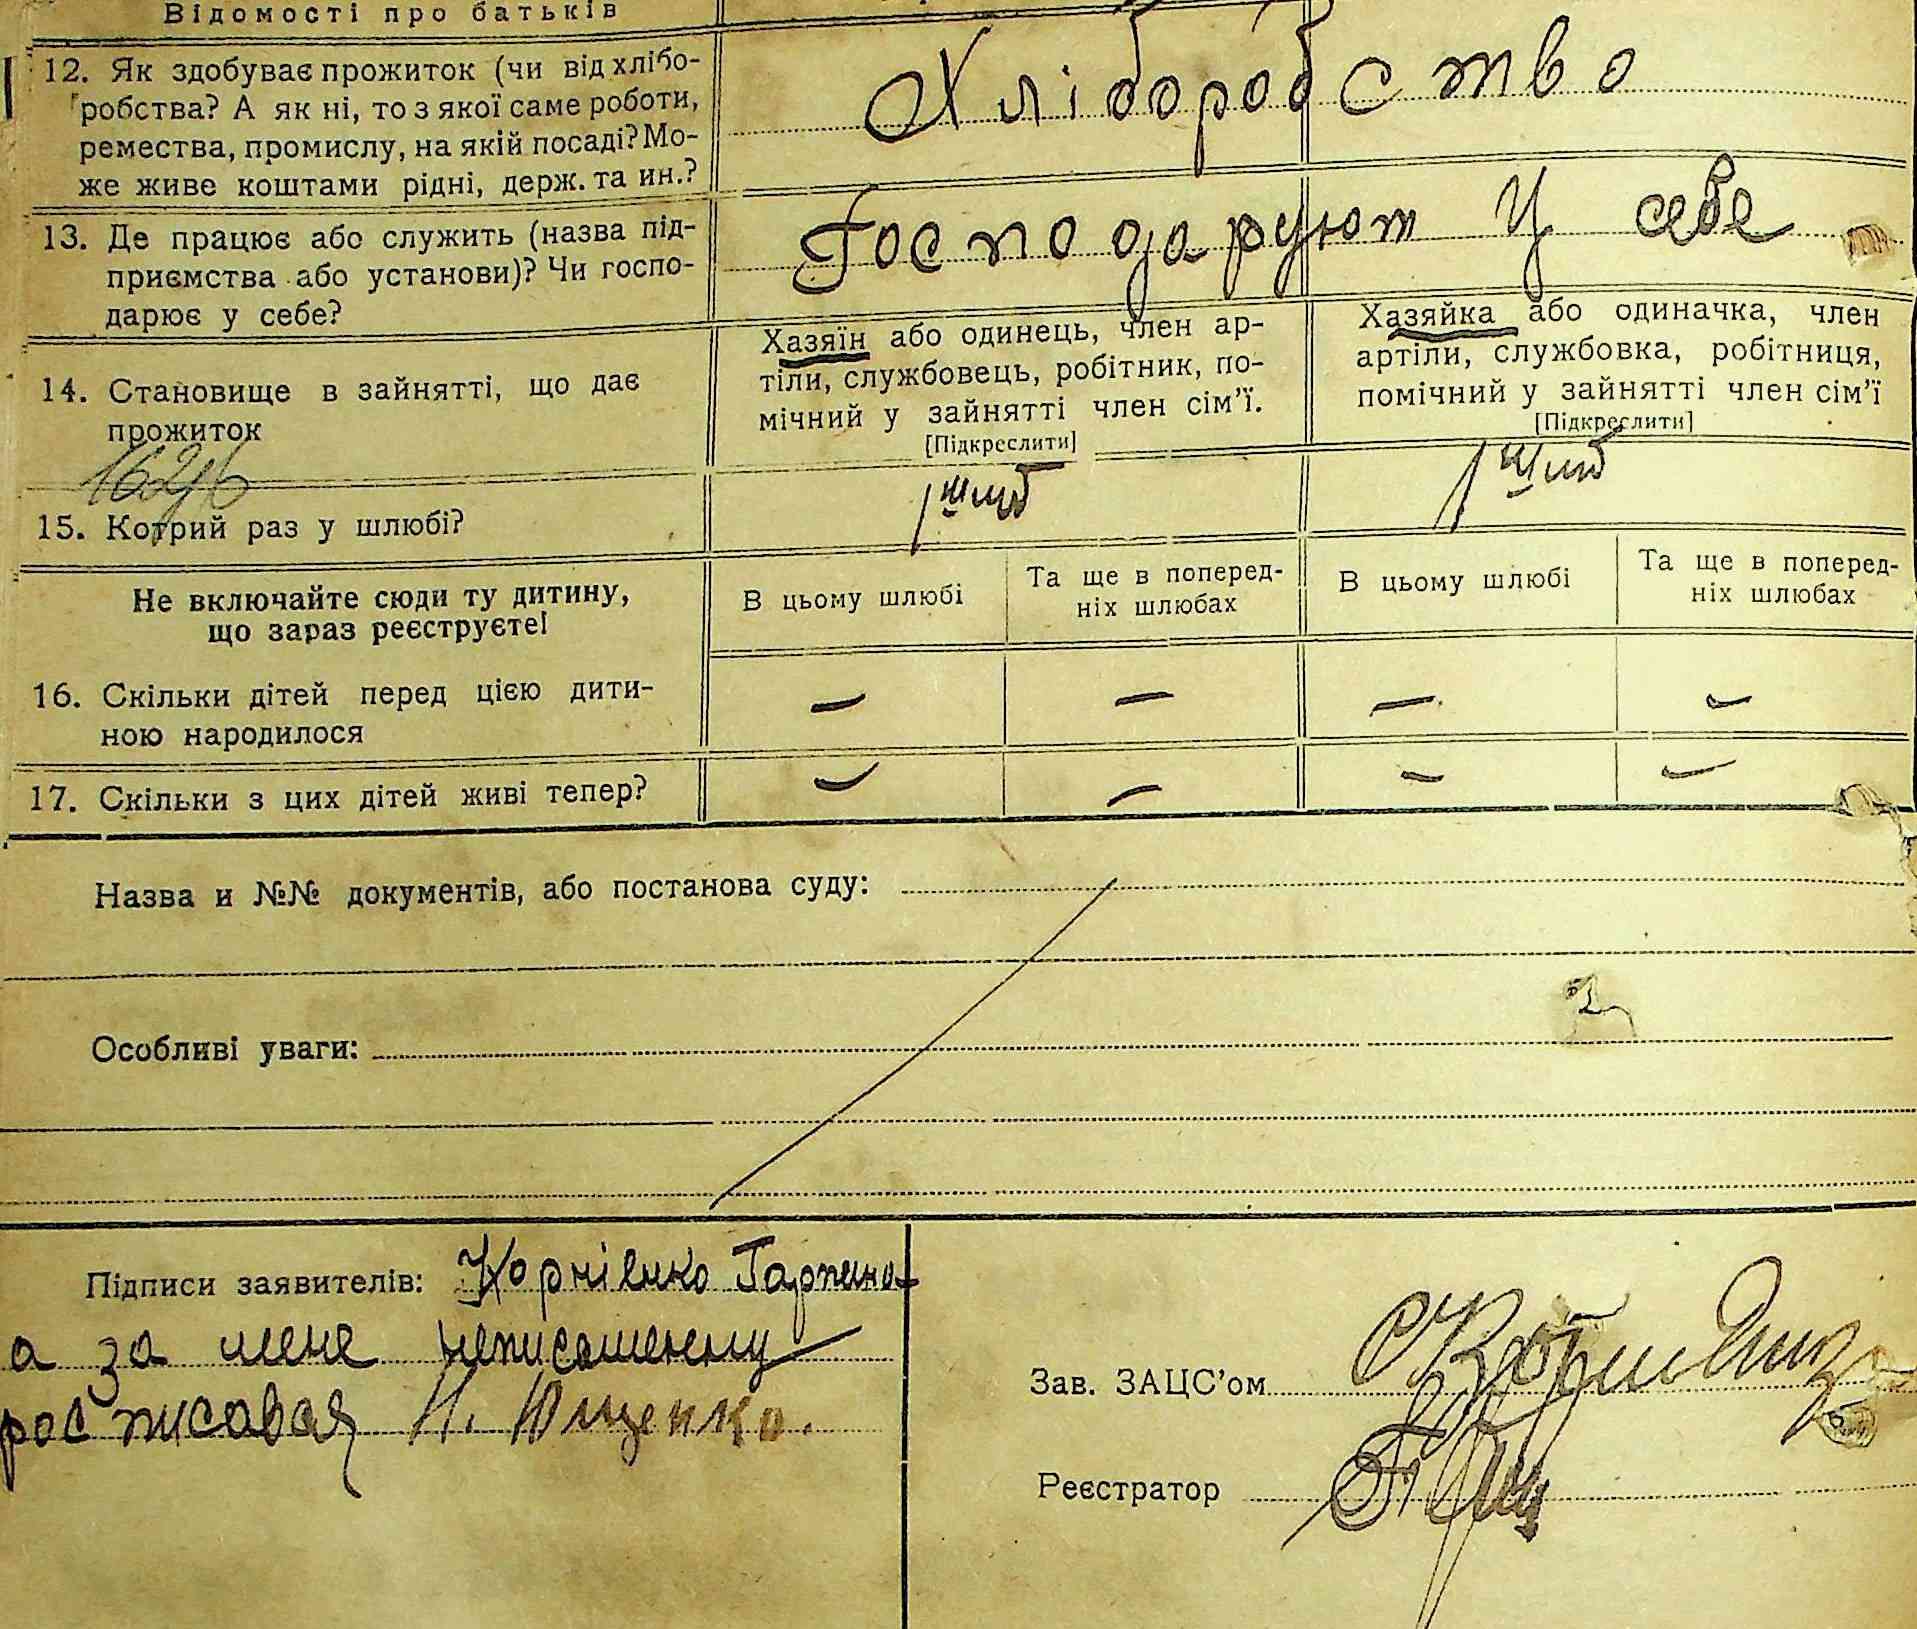 Відомості про батьків
12. Як здобуває прожиток (чи від хлібо-
робства? А як ні, то з якої саме роботи,
ремества, промислу, на якій посаді? Мо-
же живе коштами рідні, держ. та ин.?
Хліборобство
13. Де працює або служить (назва під-
приємства або установи)? Чи госпо-
дарює у себе?
Господарують у себе
14. Становище в зайнятті, що дає
прожиток
Хазяїн або одинець, член ар-
тіли, службовець, робітник, по-
мічний у зайнятті член сім'ї.
[Підкреслити]
Хазяйка або одиначка, член
артіли, службовка, робітниця,
помічний у зайнятті член сім'ї
[Підкреслити]
15. Котрий раз у шлюбі?
1 шлюб
1 шлюб
Не включайте сюди ту дитину,
що зараз реєструєте!
В цьому шлюбі
Та ще в поперед-
ніх шлюбах
В цьому шлюбі
Та ще в поперед-
ніх шлюбах
16. Скільки дітей перед цією дити-
ною народилося
— — — —
17. Скільки з цих дітей живі тепер?
— — — —
Назва и №№ документів, або постанова суду:
Особливі уваги:
Підписи заявителів: Корнієнко Гарпина
а за мене неписьменну
росписався Н. Ющенко.
Зав. ЗАЦС'ом
Реєстратор